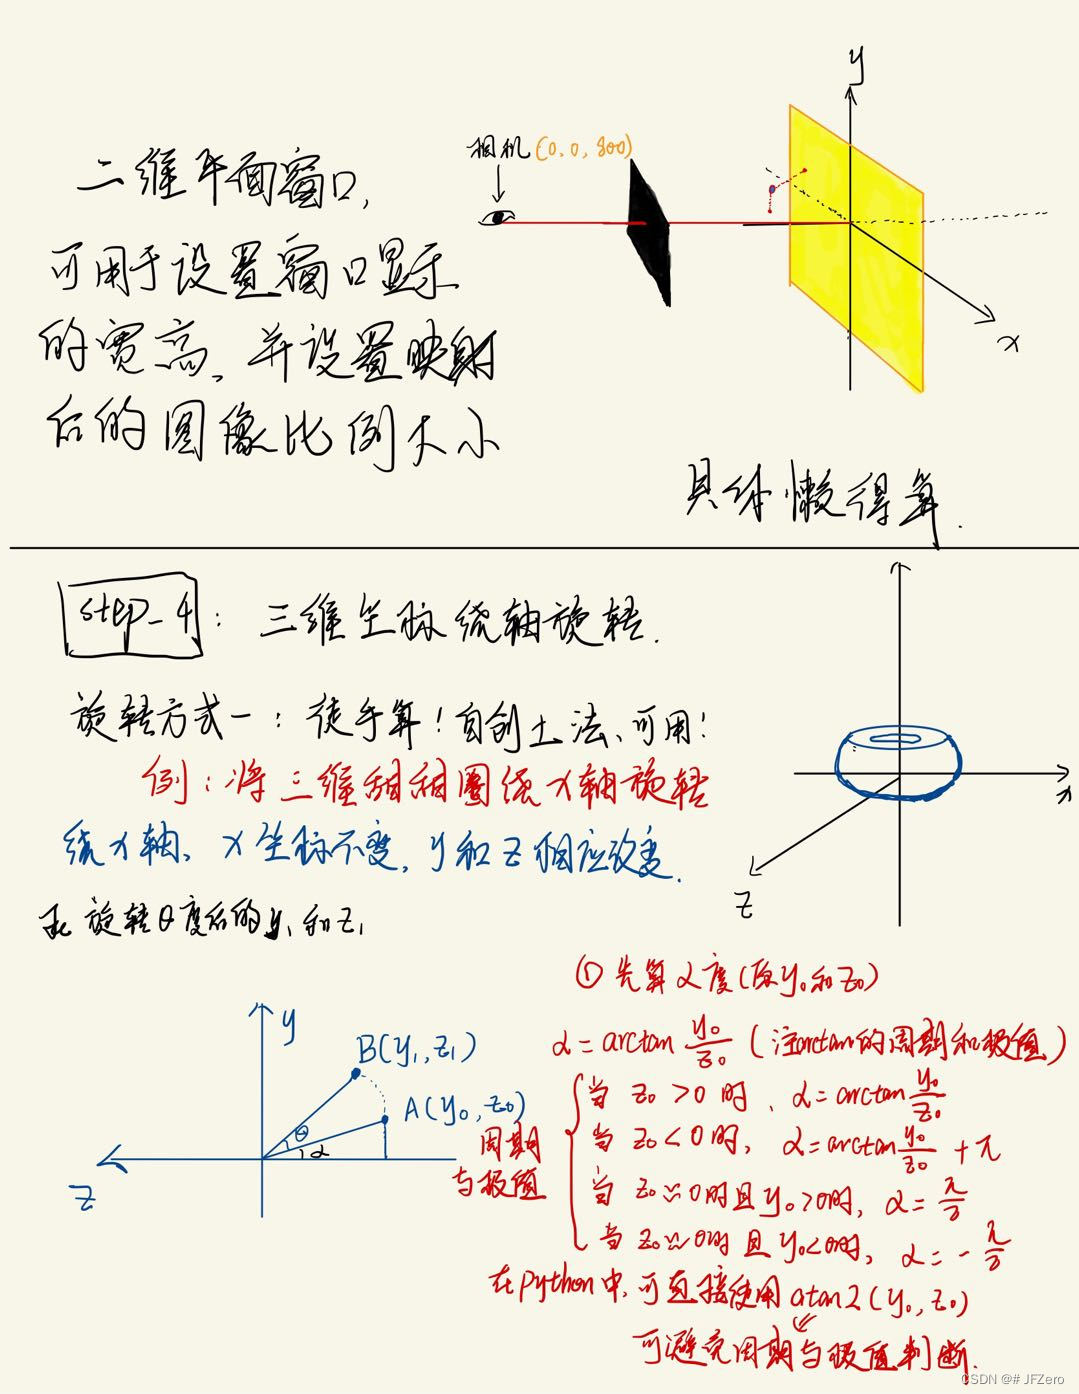 y
相机(0,0,800)
二维平面窗口,
可用于设置窗口显示
的宽高,并设置映射
后的图像比例大小
x
具体懒得算.
step-4: 三维坐标绕轴旋转.
旋转方式一:徒手算!自创土法、可用!
例:将三维甜甜圈绕x轴旋转
绕x轴、x坐标不变,y和z相应改变.
求旋转θ度后的y₁和z₁
x
z
y
B(y₁,z₁)
A(y₀,z₀)
θ
α
z
①先算α度(原y₀和z₀)
α=arctan y₀/z₀ (注arctan的周期和极值)
周期
与极值
当 z₀>0 时、α=arctan y₀/z₀
当 z₀<0时, α=arctan y₀/z₀ +π
当 z₀≈0时且y₀>0时, α=π/2
当 z₀≈0时且y₀<0时, α=-π/2
在python中,可直接使用atan2(y₀,z₀)
可避免周期与极值判断.
CSDN @# JFZero